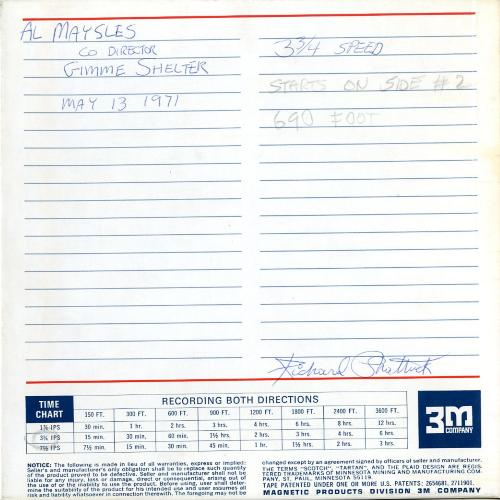 AL MAYSLES
CO DIRECTOR
GIMME SHELTER
MAY 13 1971
3 3/4 SPEED
STARTS ON SIDE #2
690 FOOT
Richard
TIME CHART
RECORDING BOTH DIRECTIONS
150 FT. 300 FT. 600 FT. 900 FT. 1200 FT. 1800 FT. 2400 FT. 3600 FT.
1⅞ IPS 30 min. 1 hr. 2 hrs. 3 hrs. 4 hrs. 6 hrs. 8 hrs. 12 hrs.
3¾ IPS 15 min. 30 min. 60 min. 1½ hrs. 2 hrs. 3 hrs. 4 hrs. 6 hrs.
7½ IPS 7½ min. 15 min. 30 min. 45 min. 1 hr. 1½ hrs. 2 hrs. 3 hrs.
3M
COMPANY
NOTICE: The following is made in lieu of all warranties, express or implied:
Seller's and manufacturer's only obligation shall be to replace such quantity
of the product proved to be defective. Seller and manufacturer shall not be
liable for any injury, loss or damage, direct or consequential, arising out of
the use of or the inability to use the product. Before using, user shall deter-
mine the suitability of the product for his intended use and user assumes all
risk and liability whatsoever in connection therewith. The foregoing may not be
changed except by an agreement signed by officers of seller and manufacturer.
THE TERMS "SCOTCH", "TARTAN", AND THE PLAID DESIGN ARE REGIS-
TERED TRADEMARKS OF MINNESOTA MINING AND MANUFACTURING COM-
PANY, ST. PAUL, MINNESOTA 55119.
TAPE PATENTED UNDER ONE OR MORE U.S. PATENTS: 2654681, 2711901.
MAGNETIC PRODUCTS DIVISION 3M COMPANY